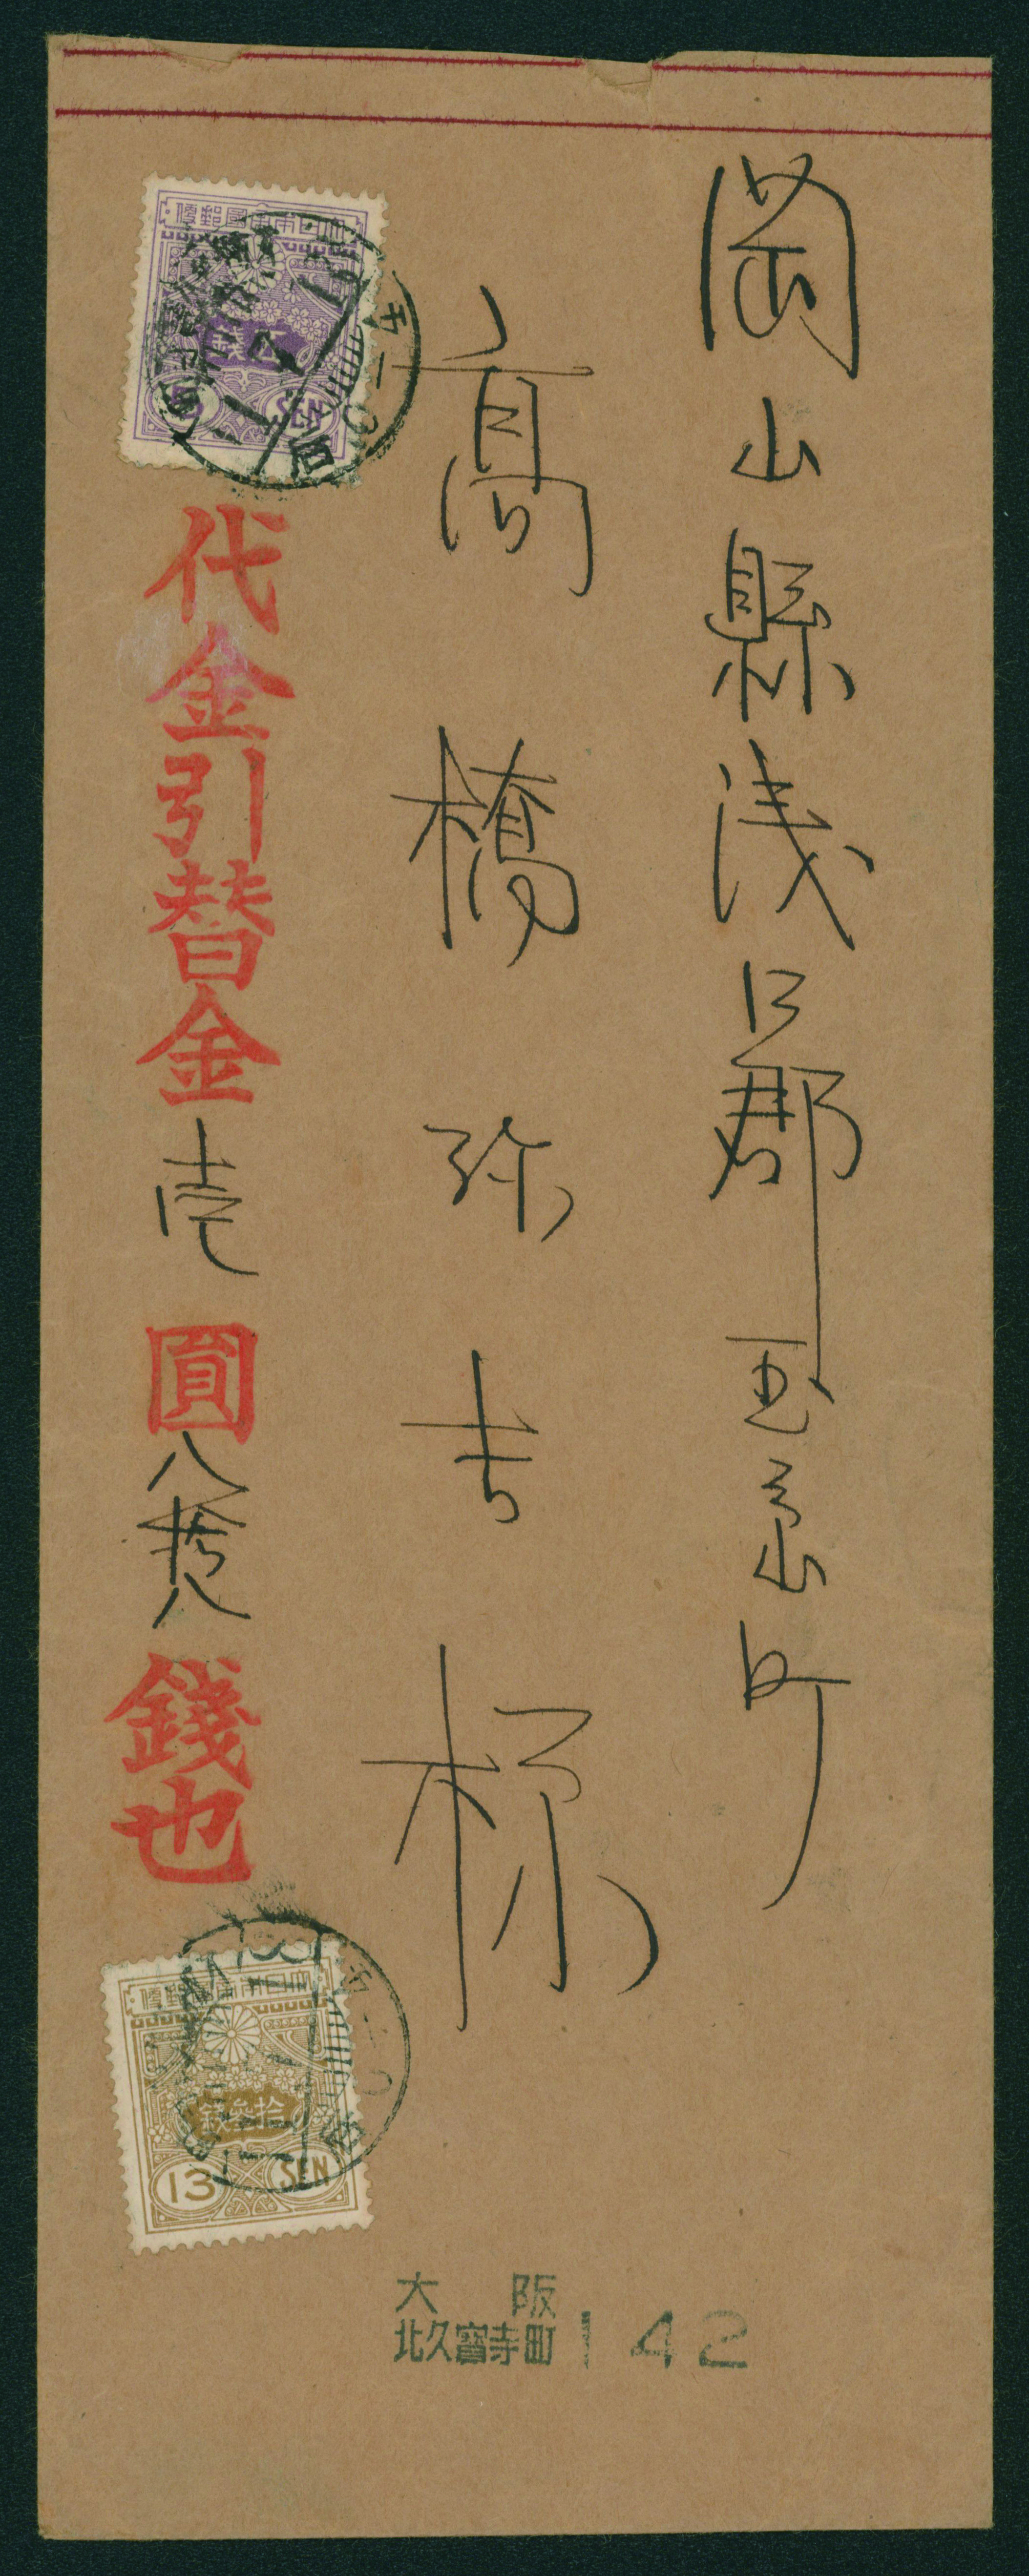 岡山縣浅口郡玉島町
高橋弥吉様
大日本帝國郵便
五錢
5
SEN
代金引替金壱圓八拾八錢也
大日本帝國郵便
拾參錢
13 SEN
大阪
北久寳寺町 142